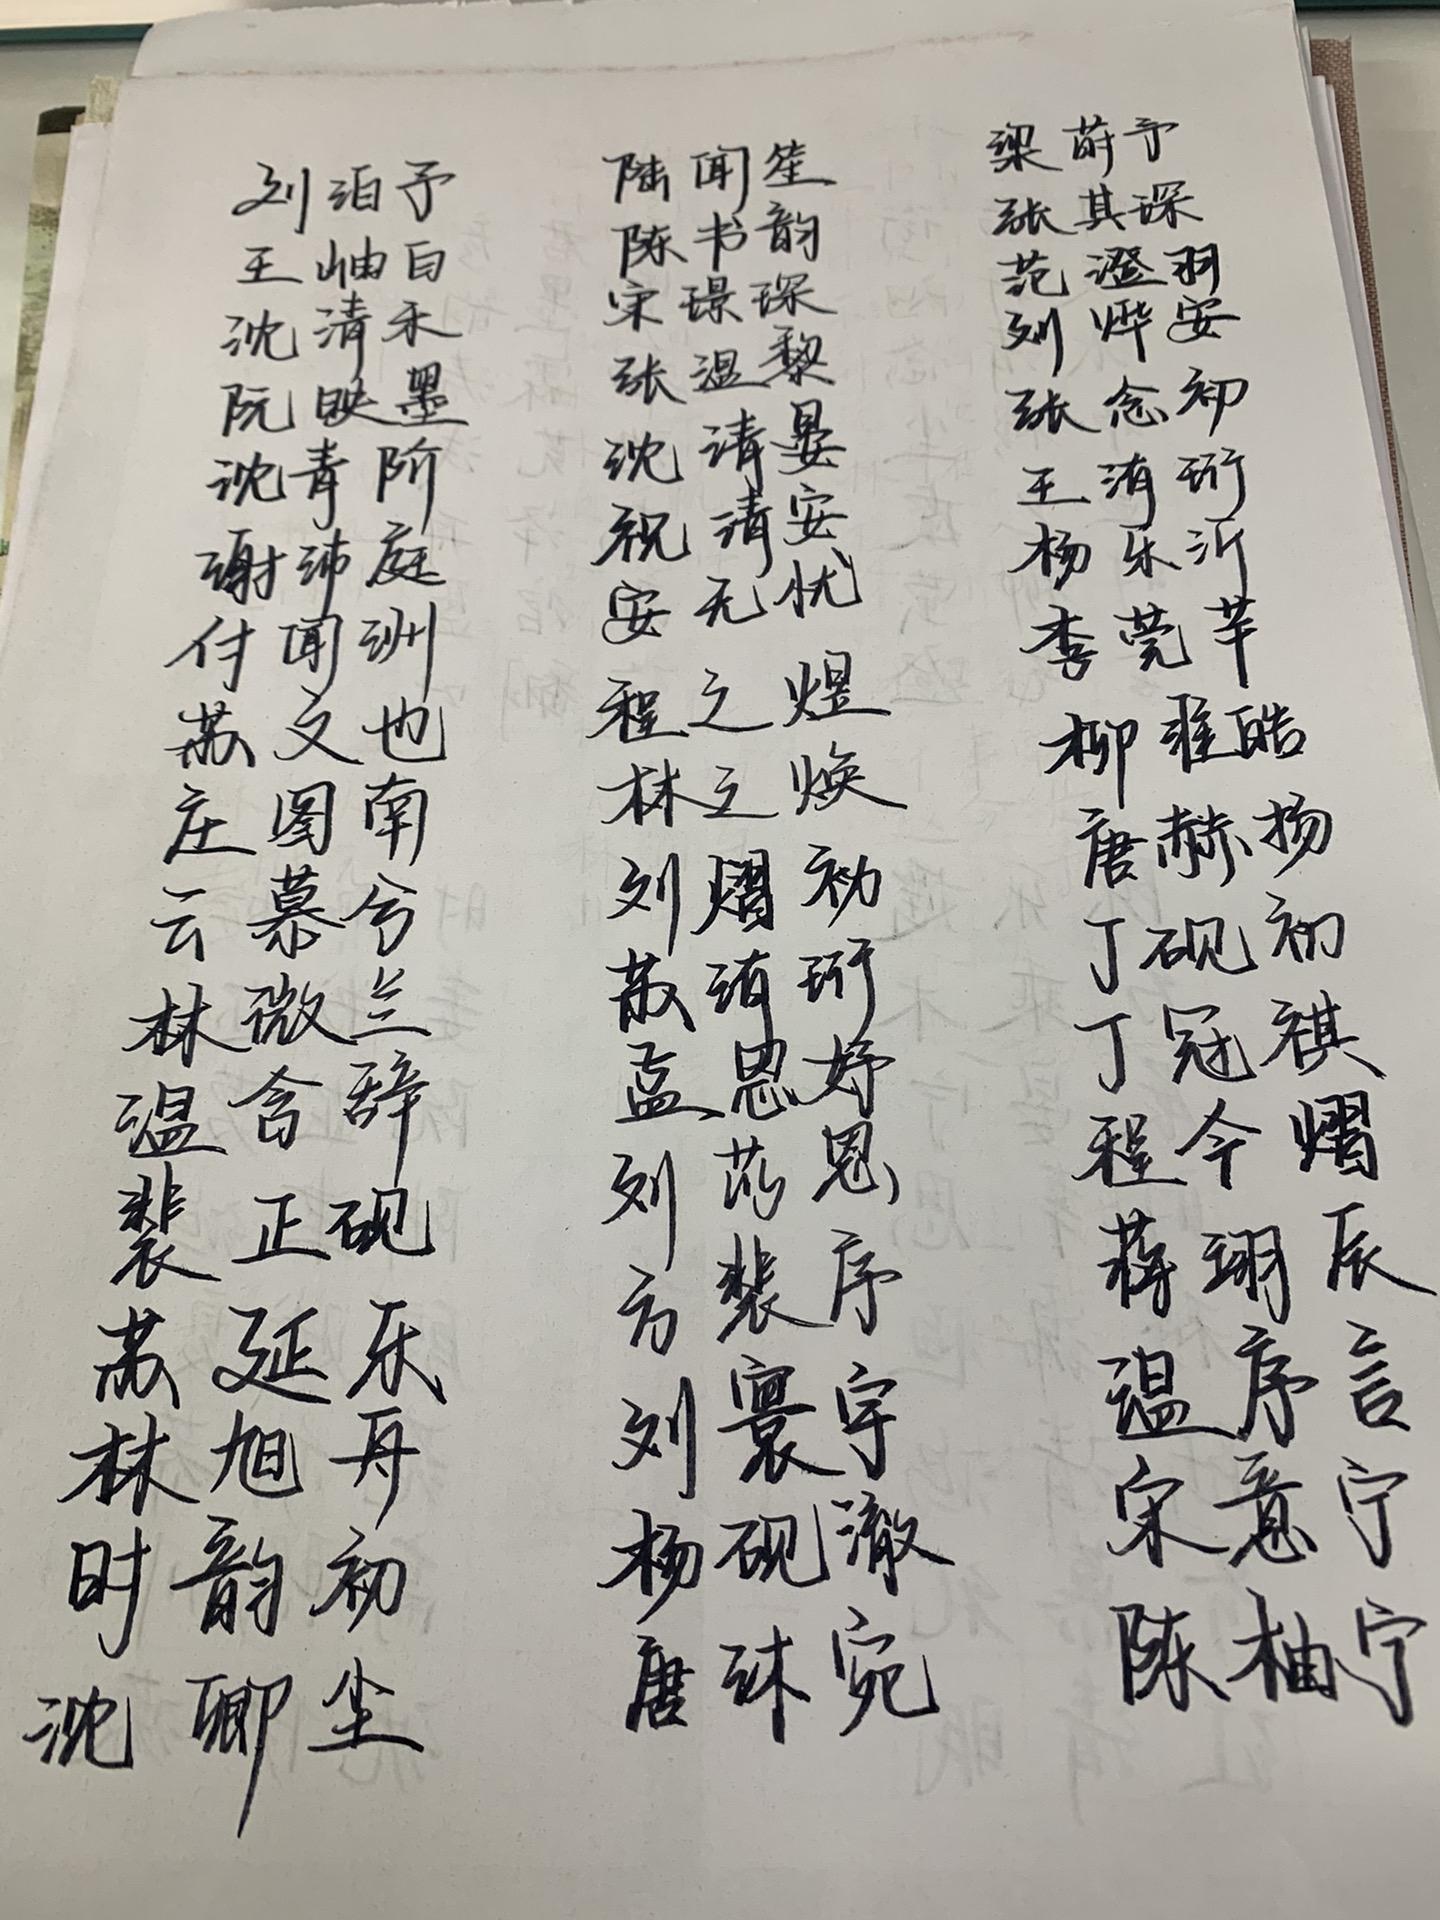 刘泊予
王岫白
沈清禾
阮映墨
沈青阶
谢沛庭
付闻洲
苏文也
庄图南
云慕兮
林微兰
温含辞
裴正砚
苏延乐
林旭舟
时韵初
沈卿尘
陆闻笙
陈书韵
宋璟琛
张温黎
沈清晏
祝清安
安无忧
程之煜
林之焕
刘熠初
苏洧珩
孟恩妤
刘芮恩
方裴序
刘寰宇
杨砚澈
唐沐宛
梁莳予
张其琛
范澄羽
刘烨安
张念初
王洧珩
杨乐沂
李莞芊
柳淮皓
唐赫扬
丁砚初
丁冠祺
程今熠
蒋翊辰
温序言
宋意宁
陈柚宁